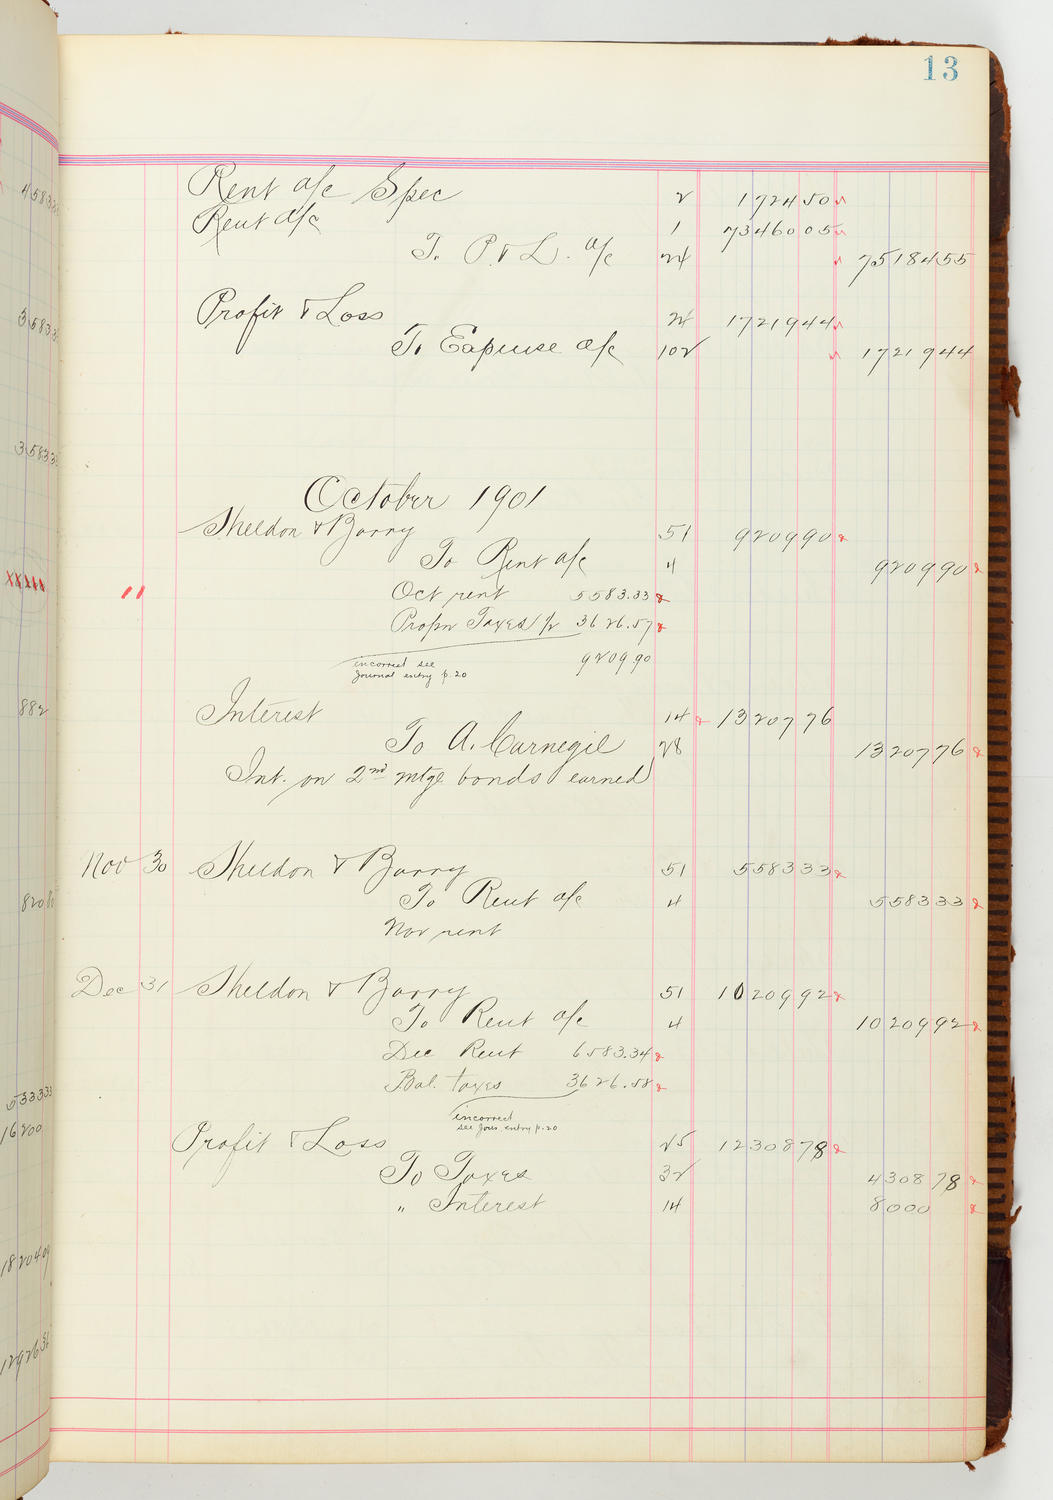 13
Rent a/c Spec 2 172450
Rent a/c 1 7346005
To P. & L. a/c 24 7518455
Profit & Loss 24 1721944
To Expense a/c 102 1721944
October 1901
Sheldon & Barry 51 920990
To Rent a/c 4 920990
" Oct rent 5583.33
Propn Taxes 1/2 3626.57
incorrect see 9209.90
Journal entry p. 20
Interest 14 1320776
To A. Carnegie 28 1320776
Int. on 2nd mtge bonds earned
Nov 30 Sheldon & Barry 51 558333
To Rent a/c 4 558333
Nov rent
Dec 31 Sheldon & Barry 51 1020992
To Rent a/c 4 1020992
Dec Rent 6583.34
Bal. taxes 3626.58
incorrect
see Jour. entry p. 20
Profit & Loss 25 1230878
To Taxes 32 430878
" Interest 14 8000